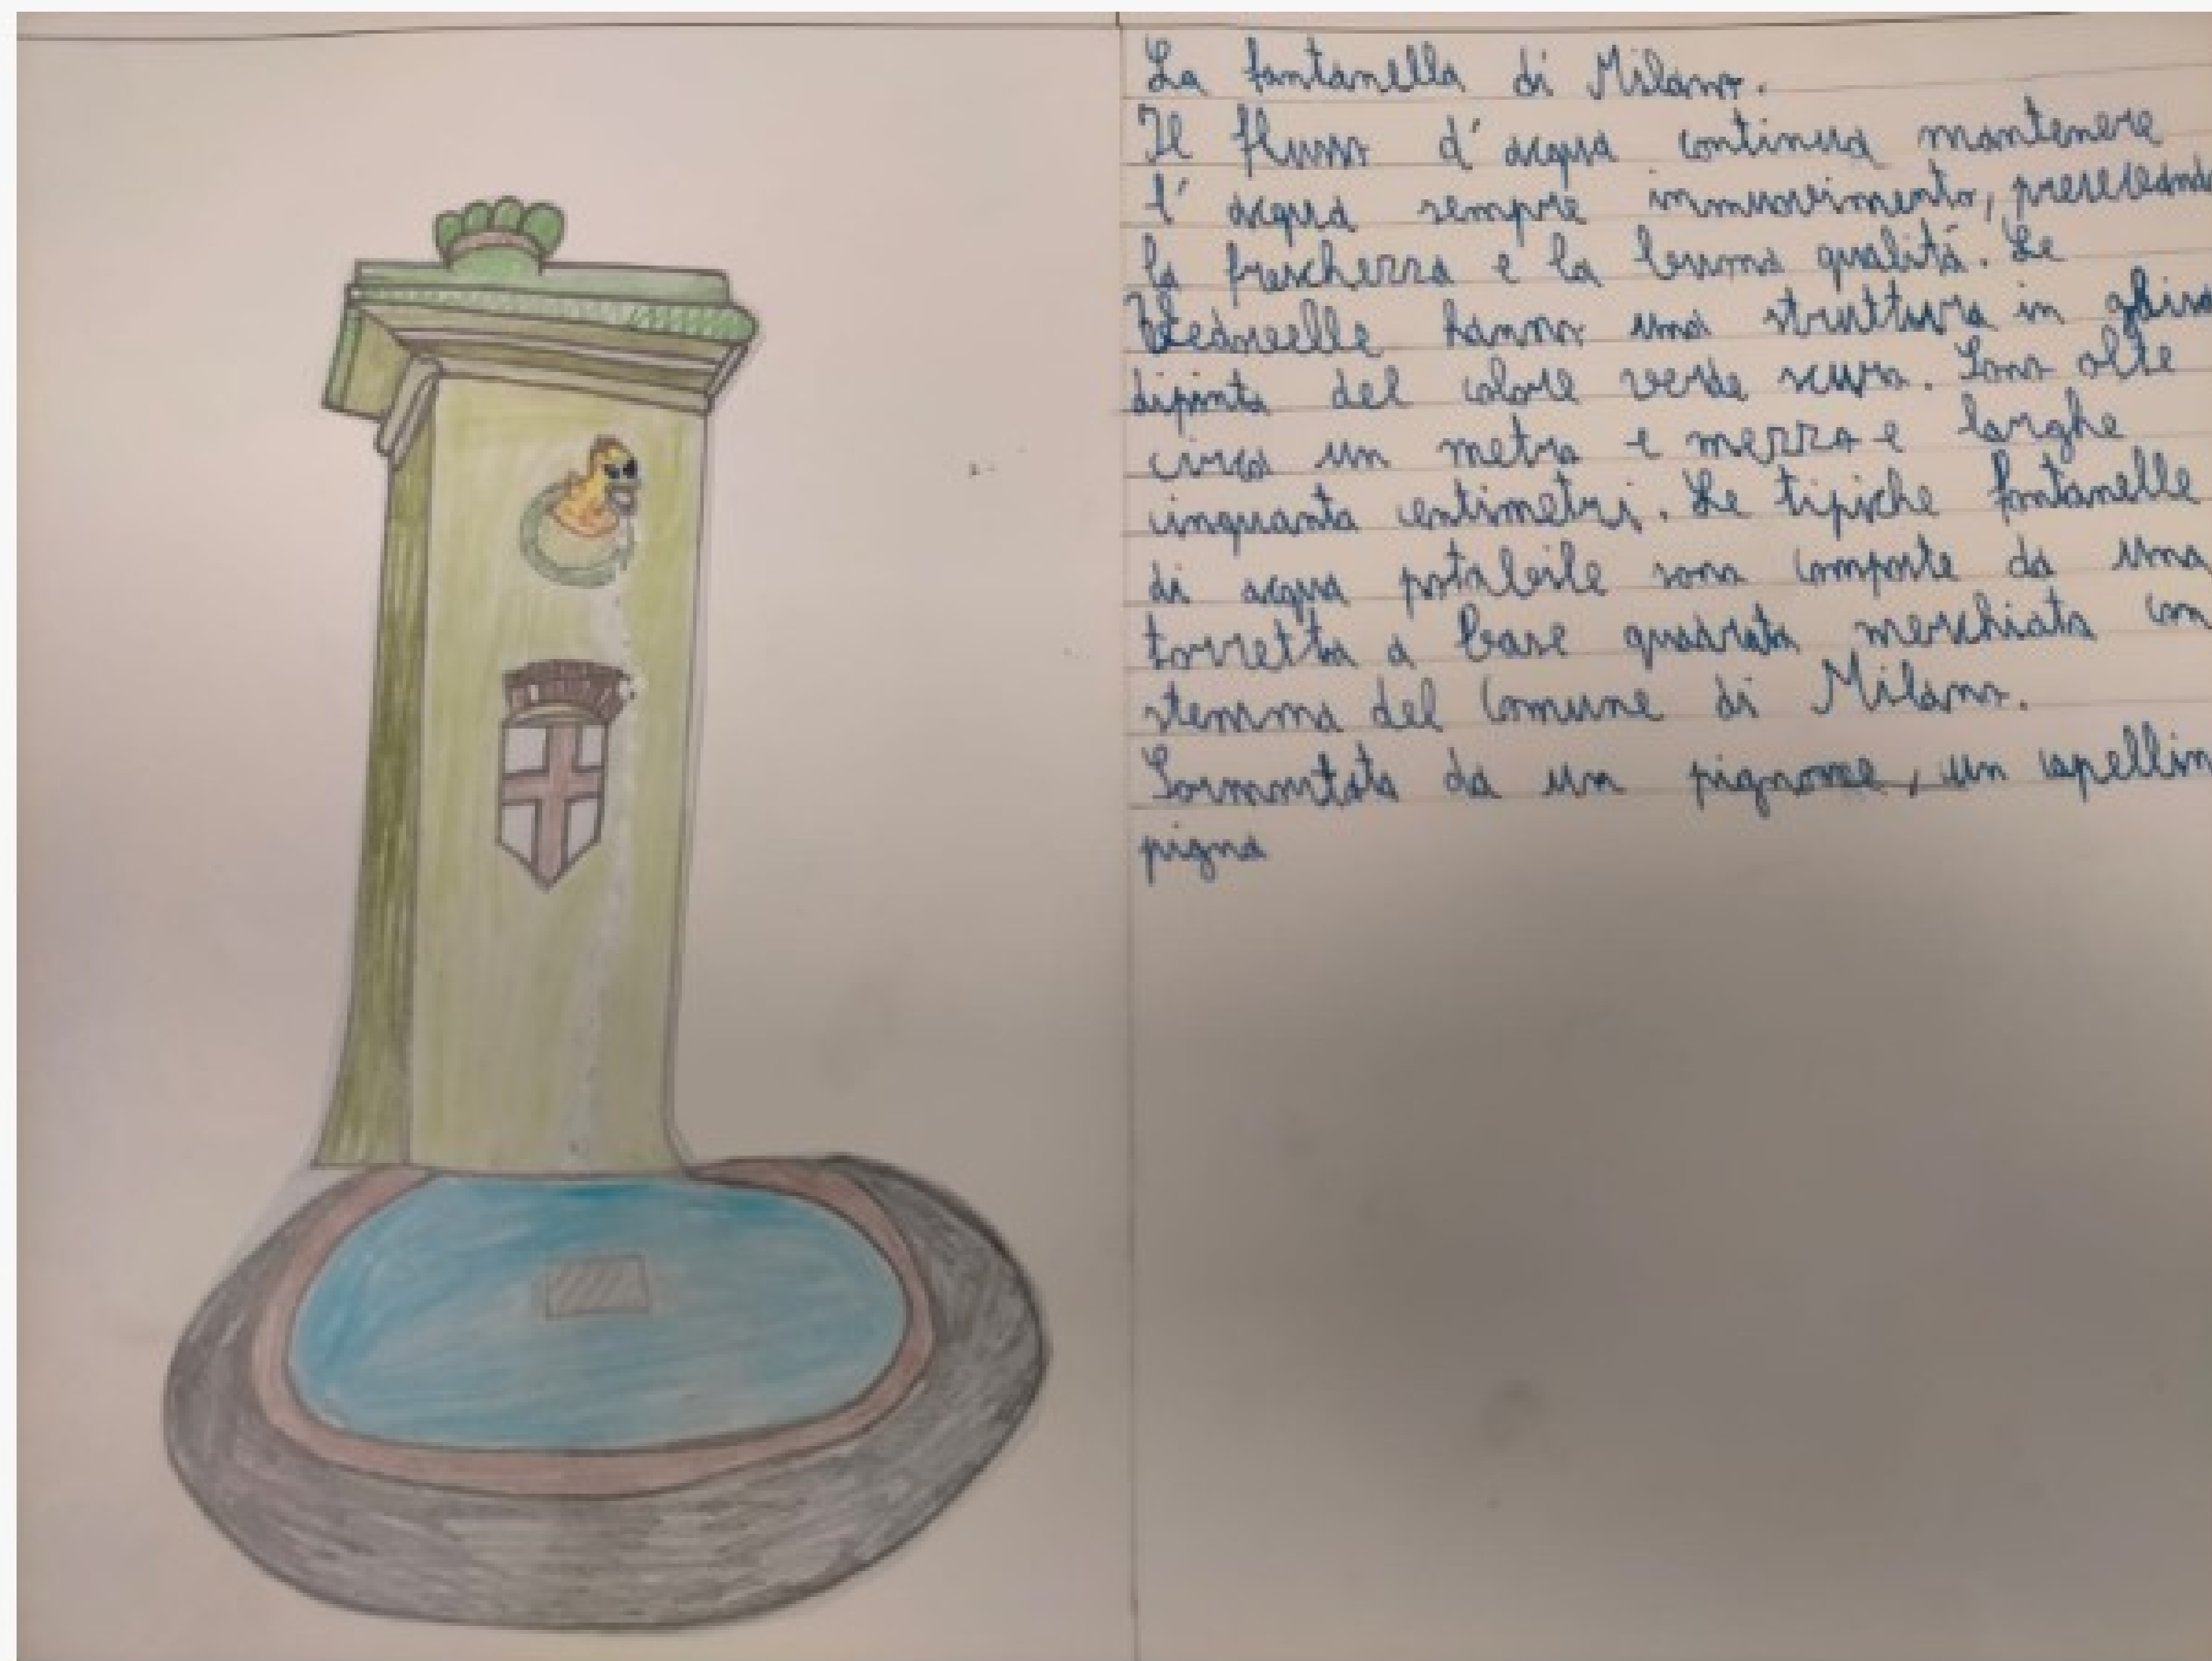 La fontanella di Milano.
Il flusso d'acqua continua mantenere
l'acqua sempre inmuovimento, preservand
la frescherza e la buona qualità. Le
Vedovelle hanno una struttura in ghisa
dipinta del colore verde scuro. Sono alte
circa un metro e mezzo e larghe
cinquanta centimetri. Le tipiche fontanelle
di acqua potabile sono composte da una
torretta a base quadrata merchiata con
stemma del Comune di Milano.
Sormontata da un pignone, un capellin
pigna